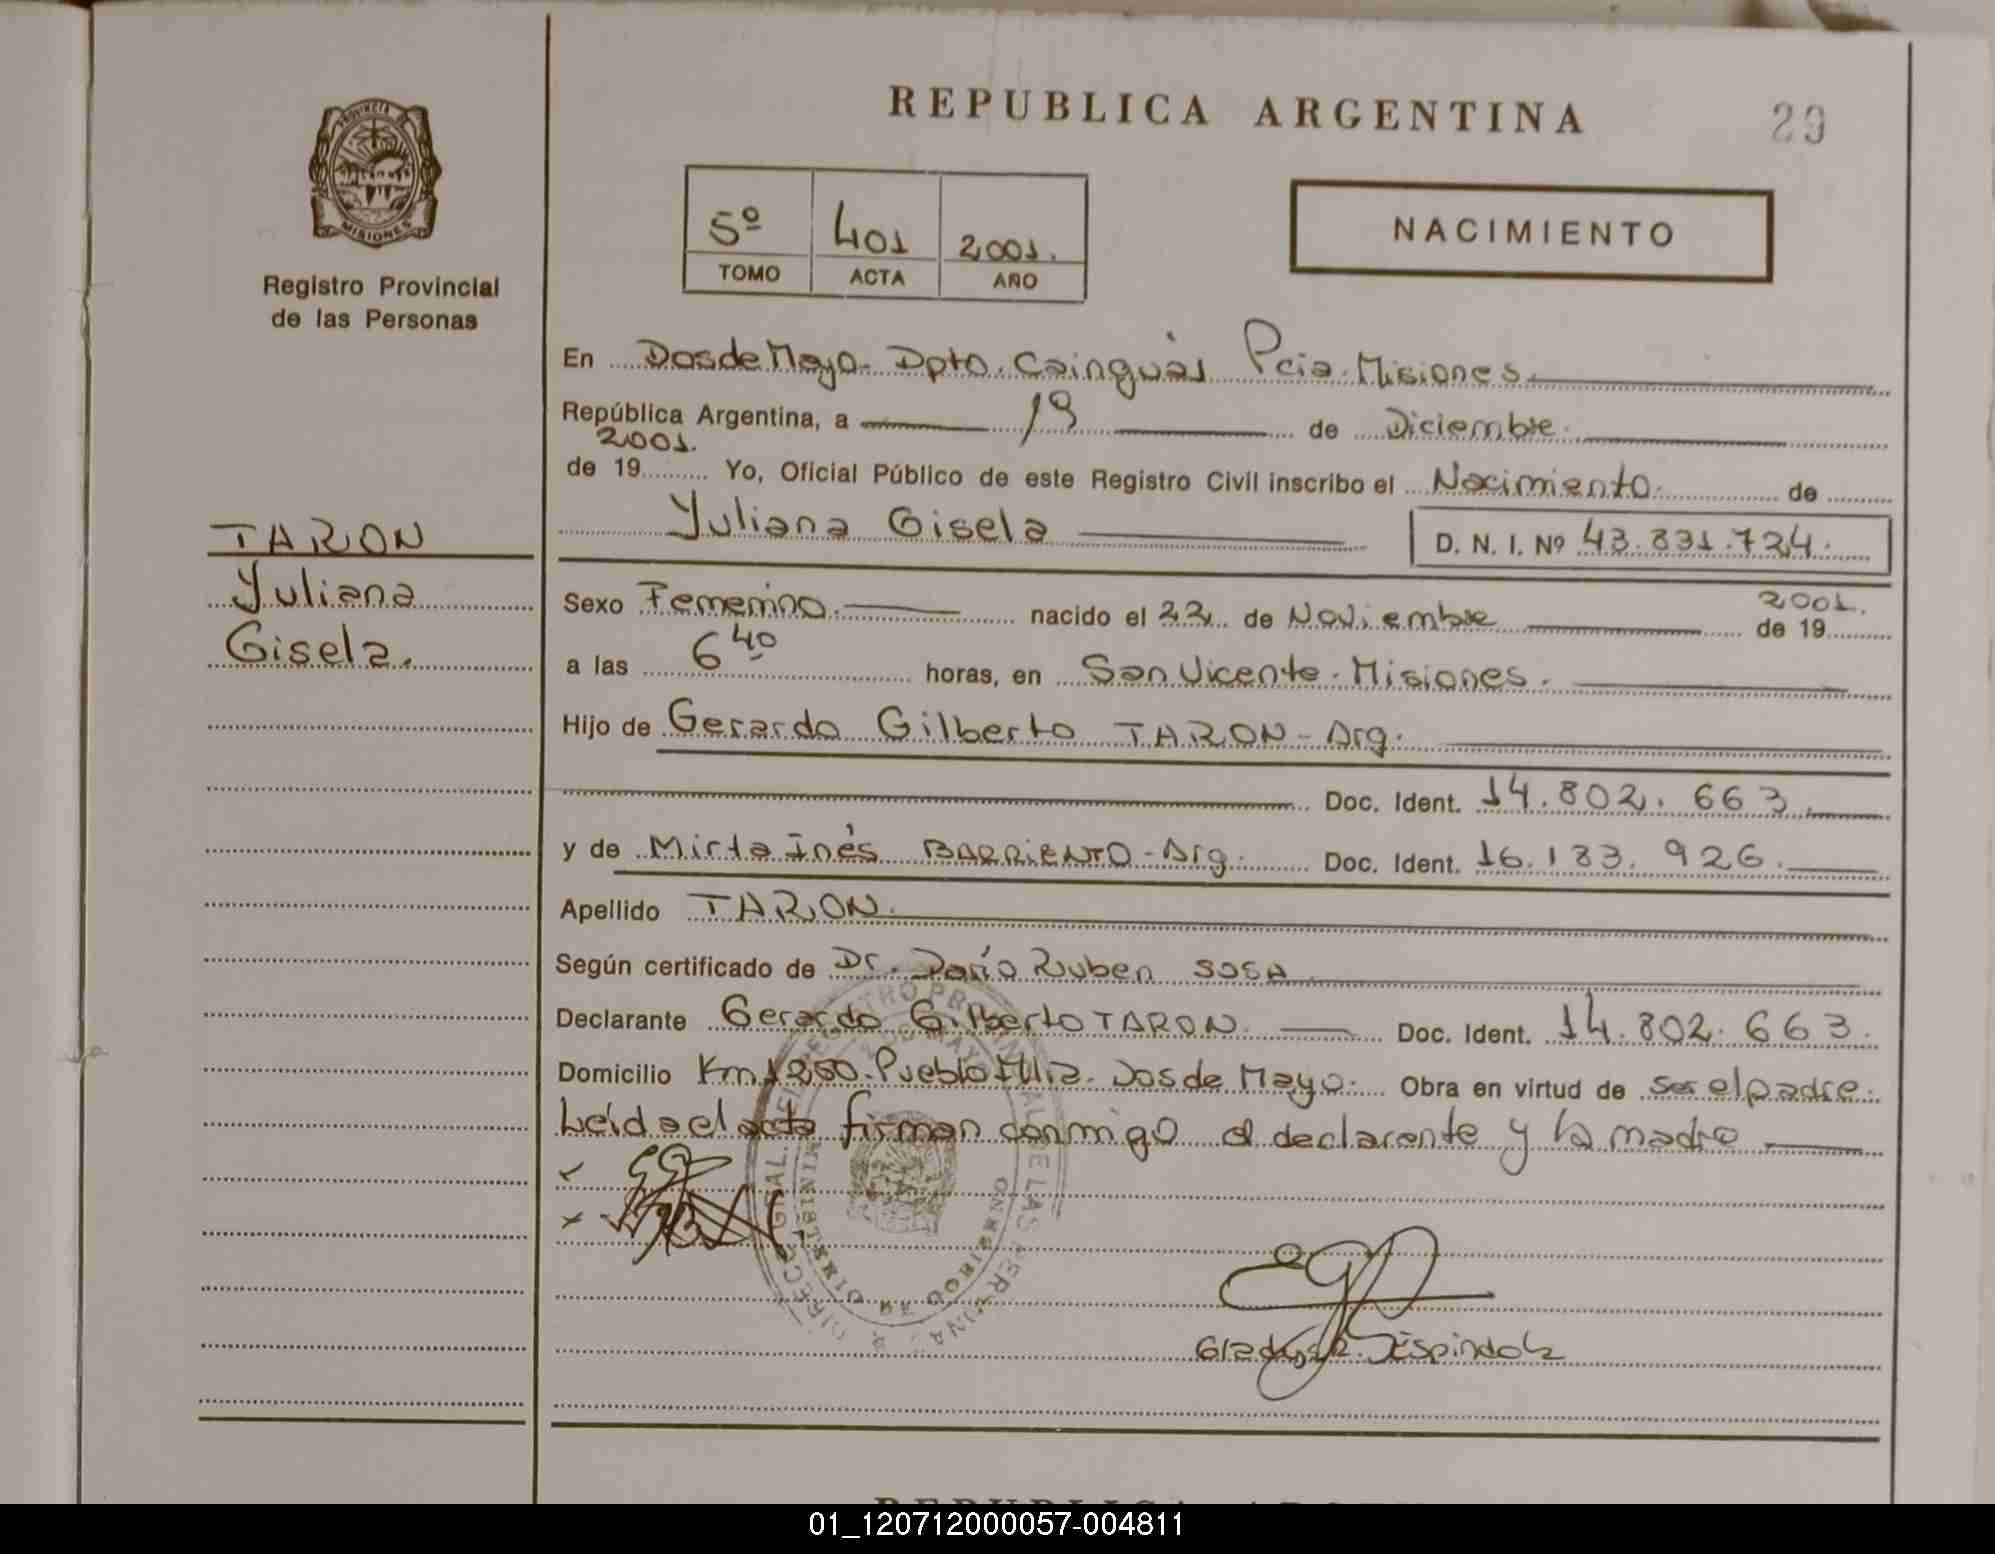 REPUBLICA ARGENTINA
29
PROVINCIA DE
MISIONES
Registro Provincial
de las Personas
5º 401 2001.
TOMO ACTA AÑO
NACIMIENTO
En Dos de Mayo. Dpto. Cainguás Pcia. Misiones.
República Argentina, a 19 de Diciembre.
2001.
de 19 Yo, Oficial Público de este Registro Civil inscribo el Nacimiento. de
Yuliana Gisela D. N. I. Nº 43.831.724.
TARON
Yuliana
Gisela.
2001.
Sexo Femenino. nacido el 22 de Noviembre de 19
a las 6 40 horas, en San Vicente. Misiones.
Hijo de Gerardo Gilberto TARON - Arg.
Doc. Ident. 14.802.663.
y de Mirta Inés BARRIENTO - Arg. Doc. Ident. 16.183.926.
Apellido TARON.
Según certificado de Dr. Darío Ruben SOSA
Declarante Gerardo Gilberto TARON Doc. Ident. 14.802.663.
Domicilio Km 1260. Pueblo Illia. Dos de Mayo. Obra en virtud de ser el padre.
Leída el acta firman conmigo el declarante y la madre
Gladys R. Espindola
REPUBLICA
01_120712000057-004811